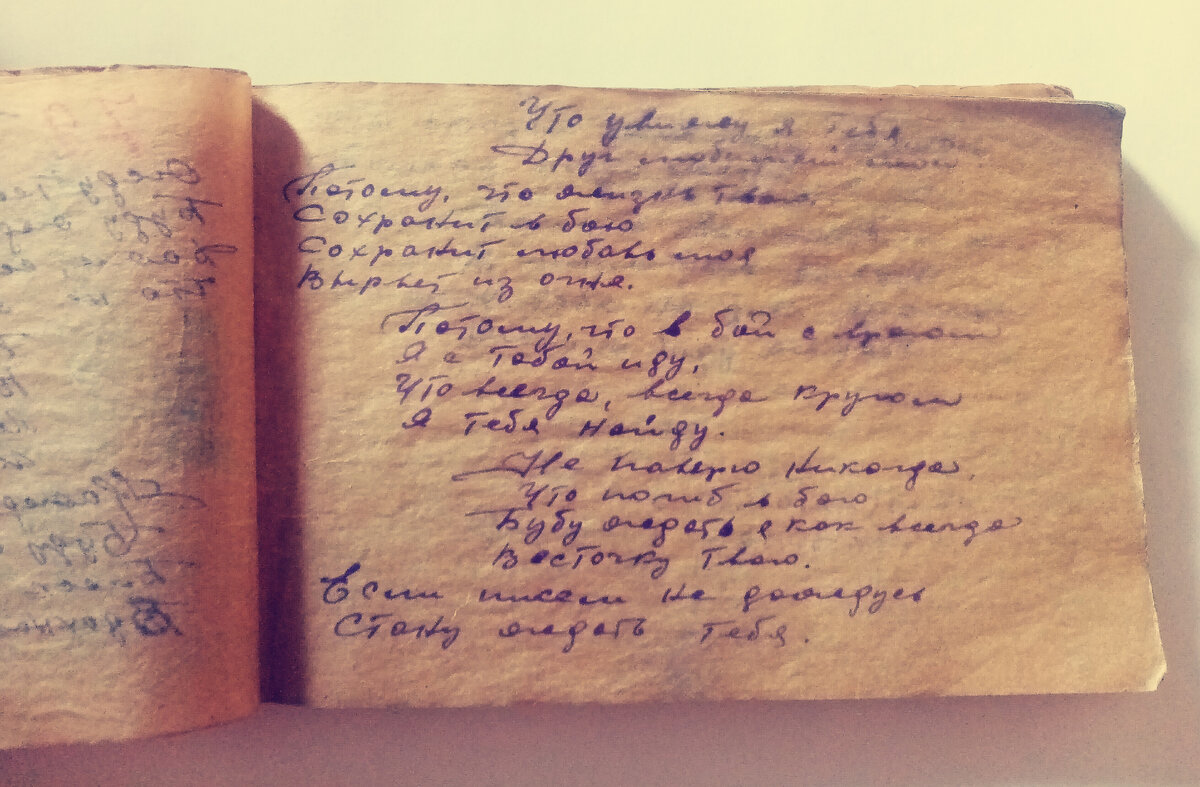 Что увижу я тебя
Друг любимый мой
Потому, что жизнь твою
Сохранит в бою
Сохранит любовь моя
Вырвет из огня.
Потому, что в бой с врагом
Я с тобой иду,
Что всегда, всегда кругом
Я тебя найду.
Не поверю никогда,
Что погиб в бою
Буду ждать я как всегда
Весточку твою.
Если писем не дождусь
Стану ждать тебя.